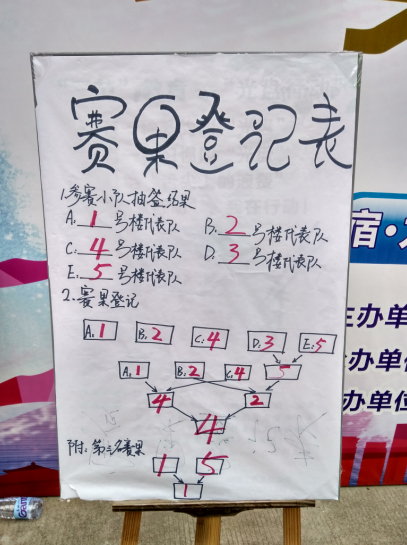 赛果登记表
1.参赛小队抽签结果
A. 1 号楼代表队 B. 2 号楼代表队
C. 4 号楼代表队 D. 3 号楼代表队
E. 5 号楼代表队
2.赛果登记
A.1 B.2 C.4 D.3 E.5
A.1 B.2 C.4 5
4 2
4
附:第三名赛果
1 5
1
宿·
主办单
办单
办单位